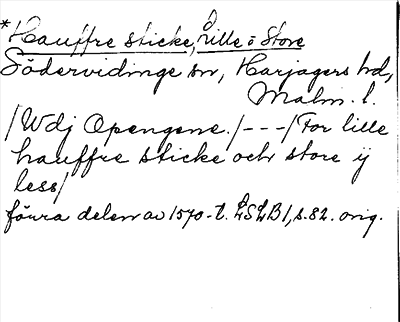 *Hauffre sticke, Lille o Store
Södervidinge sn, Harjagers hd,
Malm. l.
/Wdj Opengene./---/For lille
hauffre sticke och store ij
less/
förra delen av 1570-t. LSLB1, s. 82. orig.